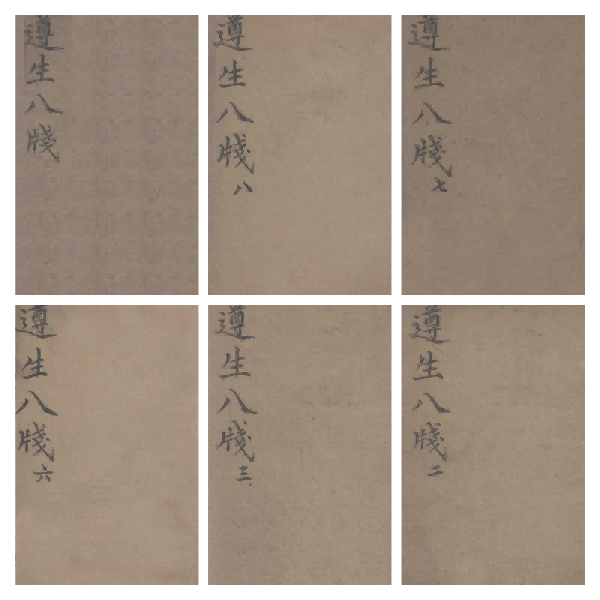 遵生八牋
遵生八牋 八
遵生八牋 七
遵生八牋 六
遵生八牋 三
遵生八牋 二